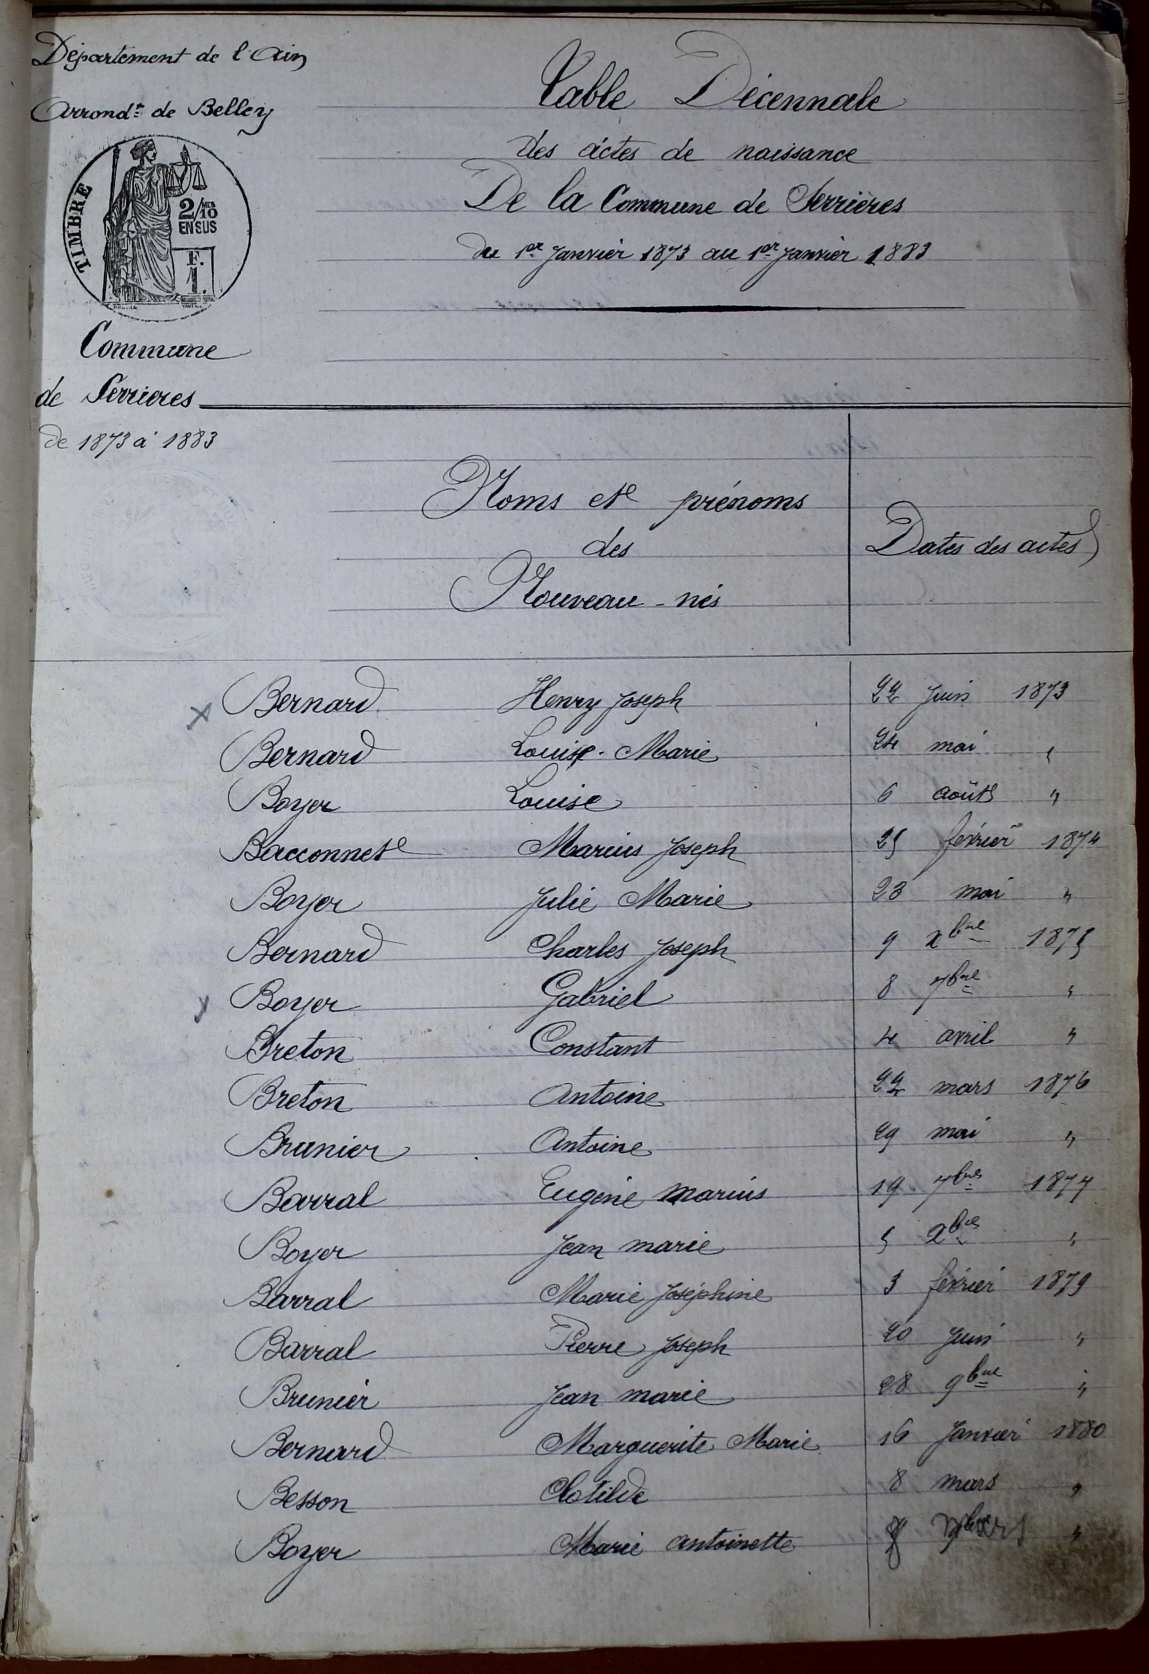 Département de l'Ain
Arrondt de Belley
TIMBRE
2/10
EN SUS
F.
1.
Commune
de Serrieres
De 1873 à 1883
Table Décennale
des actes de naissance
De la Commune de Serrières
du 1er Janvier 1873 au 1er Janvier 1883
Noms et prénoms
des
Nouveau-nés
Dates des actes
x Bernard Henry Joseph 22 Juin 1873
Bernard Louise Marie 24 mai "
Boyer Louise 6 août "
Bacconnet Marius Joseph 25 février 1874
Boyer Julie Marie 23 mai "
Bernard Charles Joseph 9 xbre 1875
Boyer Gabriel 8 7bre "
Breton Constant 4 avril "
Breton Antoine 22 mars 1876
Brunier Antoine 29 mai "
Barral Eugène Marius 19 7bre 1877
Boyer Jean marie 5 xbre "
Barral Marie Joséphine 3 février 1879
Barral Pierre Joseph 20 Juin "
Brunier Jean marie 28 9bre "
Bernard Marguerite Marie 16 Janvier 1880
Besson Clotilde 8 mars "
Boyer Marie Antoinette "